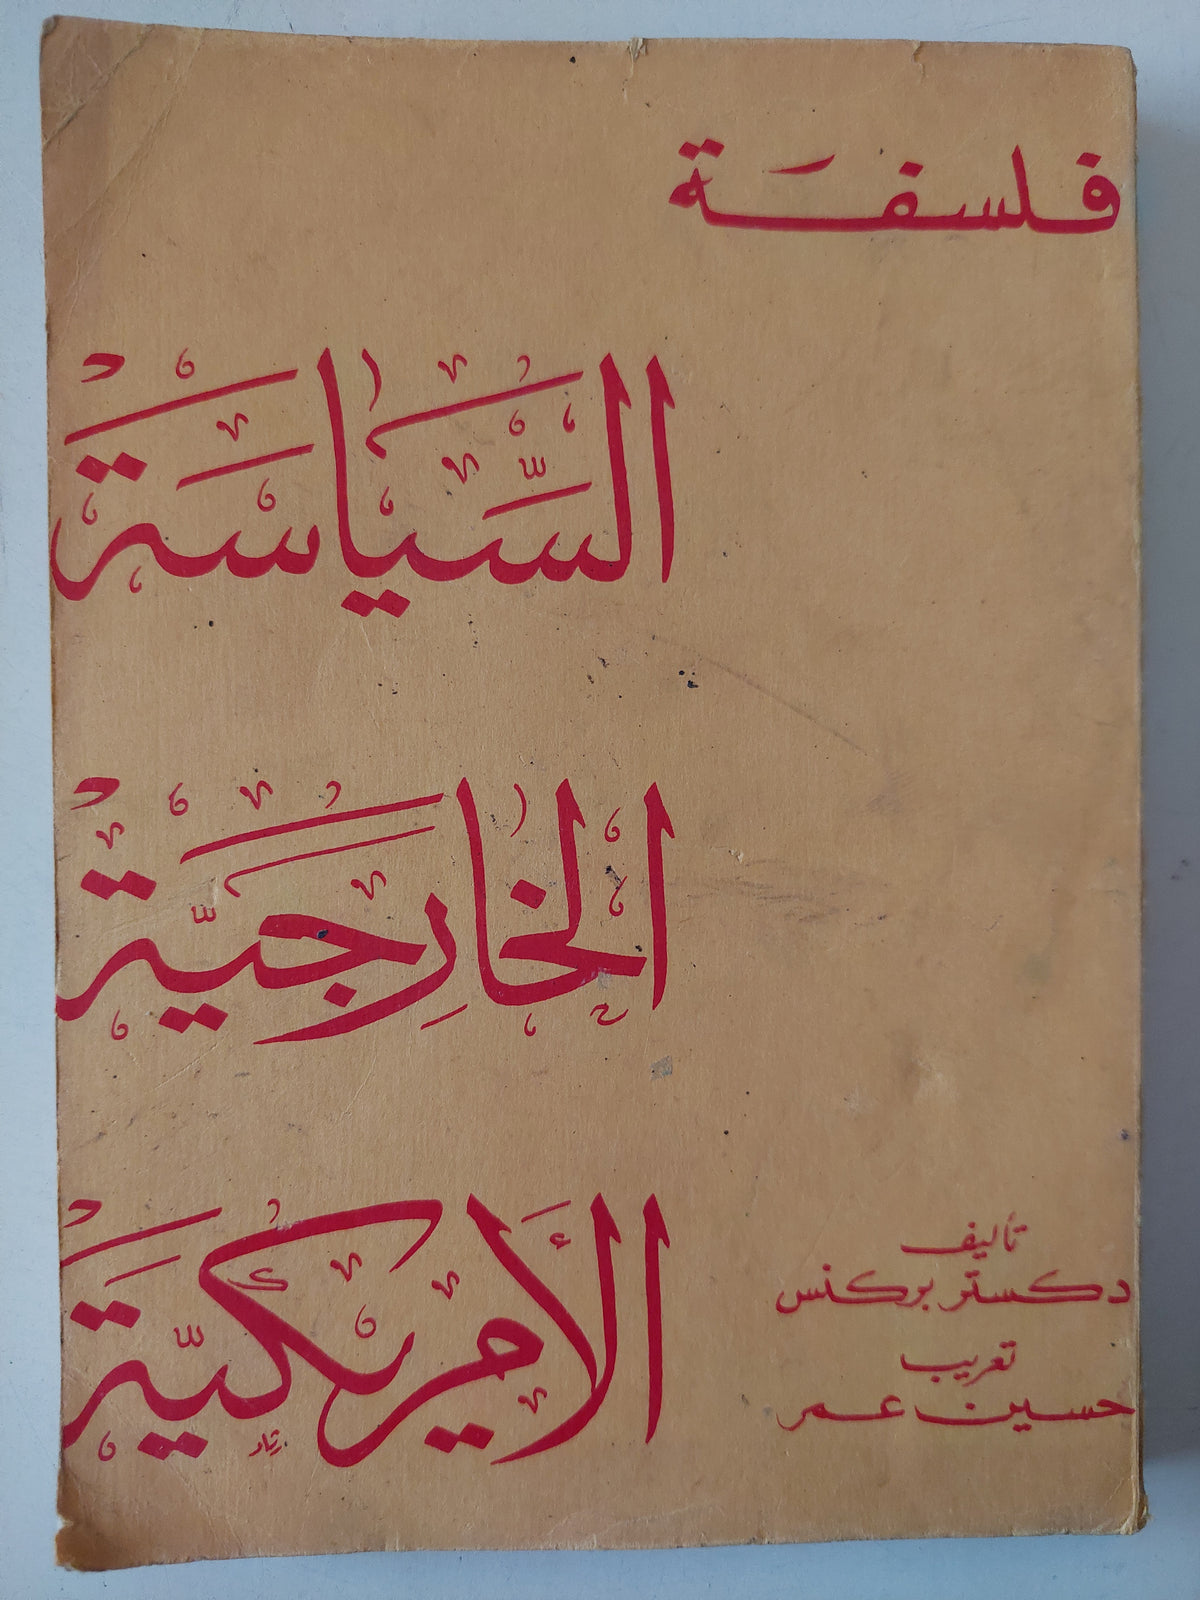 فلسفة
السّياسة
الخارِجيّة
الأمريكيّة
تأليف
دكستر بركنس
تعريب
حسين عمر